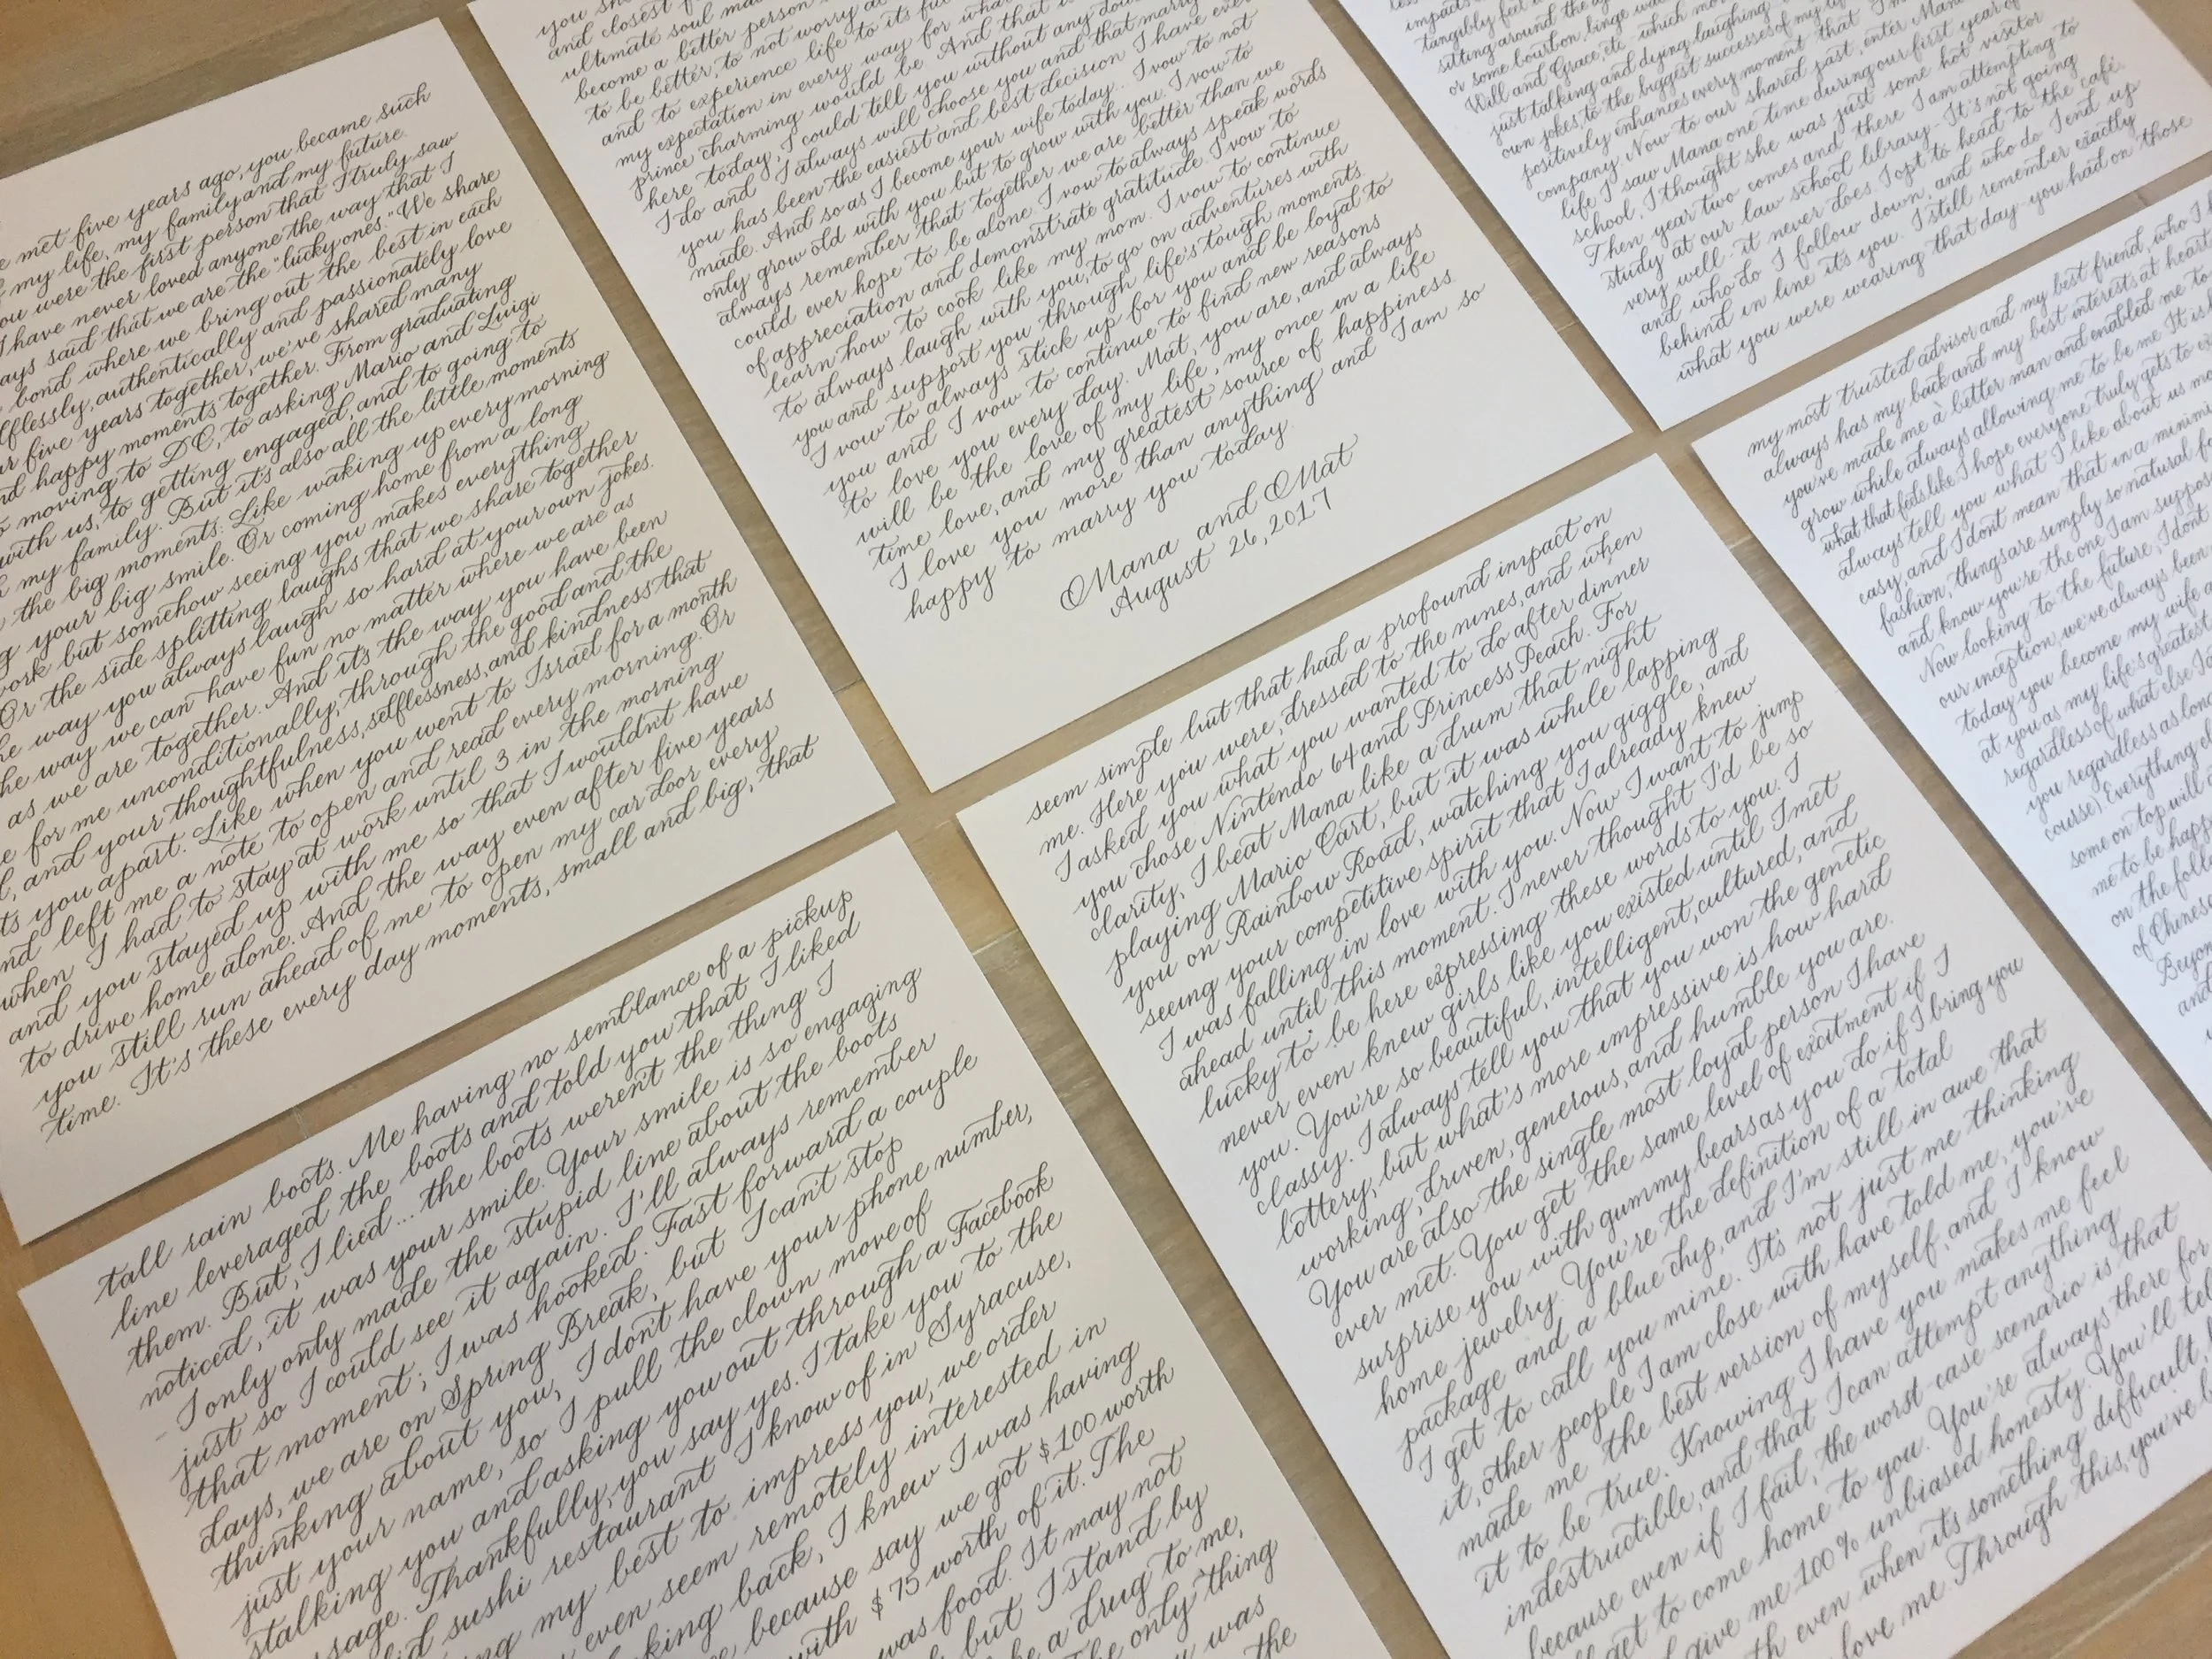 e met five years ago, you became such
f my life, my family and my future.
ou were the first person that I truly saw
I have never loved anyone the way that I
ays said that we are the "lucky ones." We share
bond where we bring out the best in each
lflessly, authentically and passionately love
r five years together, we've shared many
nd happy moments together. From graduating
o moving to DC, to asking Mario and Luigi
with us, to getting engaged, and to going to
my family. But it's also all the little moments
the big moments. Like waking up every morning
g your big smile. Or coming home from a long
work but somehow seeing you makes everything
Or the side splitting laughs that we share together
he way you always laugh so hard at your own jokes.
he way we can have fun no matter where we are as
as we are together. And it's the way you have been
e for me unconditionally, through the good and the
, and your thoughtfulness, selflessness, and kindness that
ts you apart. Like when you went to Israel for a month
nd left me a note to open and read every morning. Or
when I had to stay at work until 3 in the morning
and you stayed up with me so that I wouldn't have
to drive home alone. And the way even after five years
you still run ahead of me to open my car door every
time. It's these every day moments, small and big, that
you sh
and closest f
ultimate soul ma
become a better person
to be better, to not worry a
and to experience life to its ful
my expectation in every way for what
prince charming would be. And that is
here today, I could tell you without any dou
I do and I always will choose you and that marry
you has been the easiest and best decision I have ever
made. And so as I become your wife today. I vow to not
only grow old with you but to grow with you. I vow to
always remember that together we are better than we
could ever hope to be alone. I vow to always speak words
of appreciation and demonstrate gratitude. I vow to
learn how to cook like my mom. I vow to continue
to always laugh with you, to go on adventures with
you and support you through life's tough moments.
I vow to always stick up for you and be loyal to
you and I vow to continue to find new reasons
to love you every day. Mat, you are, and always
will be the love of my life, my once in a life
time love, and my greatest source of happiness.
I love you more than anything and I am so
happy to marry you today.
Mana and Mat
August 26, 2017
impacts
tangibly feel
sitting around the
or some bourbon, binge wa
Will and Grace, etc. which mo
just talking and dying laughing
own jokes, to the biggest successes of my li
positively enhances every moment that I'm
company. Now to our shared past, enter Mana
life. I saw Mana one time during our first year of
school, I thought she was just some hot visitor
Then year two comes and there I am attempting to
study at our law school library - It's not going
very well - it never does. I opt to head to the café,
and who do I follow down, and who do I end up
behind in line it's you. I still remember exactly
what you were wearing that day - you had on those
tall rain boots. Me having no semblance of a pickup
line leveraged the boots and told you that I liked
them. But, I lied... the boots weren't the thing I
noticed, it was your smile. Your smile is so engaging
- I only only made the stupid line about the boots
just so I could see it again. I'll always remember
that moment; I was hooked. Fast forward a couple
days, we are on Spring Break, but I can't stop
thinking about you, I don't have your phone number,
just your name, so I pull the clown move of
stalking you and asking you out through a Facebook
ssage. Thankfully, you say yes. I take you to the
sushi restaurant I know of in Syracuse,
ng my best to impress you, we order
even seem remotely interested in
king back, I knew I was having
e because say we got $100 worth
with $75 worth of it. The
was food. It may not
but I stand by
e a drug to me,
e only thing
was
the
seem simple but that had a profound impact on
me. Here you were, dressed to the nines, and when
I asked you what you wanted to do after dinner
you chose Nintendo 64 and Princess Peach. For
clarity, I beat Mana like a drum that night
playing Mario Cart, but it was while lapping
you on Rainbow Road, watching you giggle, and
seeing your competitive spirit that I already knew
I was falling in love with you. Now I want to jump
ahead until this moment. I never thought I'd be so
lucky to be here expressing these words to you. I
never even knew girls like you existed until I met
you. You're so beautiful, intelligent, cultured, and
classy. I always tell you that you won the genetic
lottery, but what's more impressive is how hard
working, driven, generous, and humble you are.
You are also the single most loyal person I have
ever met. You get the same level of excitment if I
surprise you with gummy bears as you do if I bring you
home jewelry. You're the definition of a total
package and a blue chip, and I'm still in awe that
I get to call you mine. It's not just me thinking
it, other people I am close with have told me, you've
made me the best version of myself, and I know
it to be true. Knowing I have you makes me feel
indestructible, and that I can attempt anything
because even if I fail, the worst case scenario is that
get to come home to you. You're always there for
give me 100% unbiased honesty. You'll tel
th even when it's something difficult,
love me. Through this, you've
my most trusted advisor and my best friend, who I k
always has my back and my best interests at heart
you've made me a better man and enabled me to
grow while always allowing me to be me. It is
what that feels like I hope everyone truly gets to ex
always tell you what I like about us mo
easy, and I don't mean that in a minim
fashion, things are simply so natural fo
and know you're the one I am suppos
Now looking to the future, I don't
our inception, we've always been
today you become my wife a
at you as my life's greatest
regardless of what else I a
you regardless as long
course). Everything el
some on top will
me to be happ
on the foll
of Chinese
Beyon
and